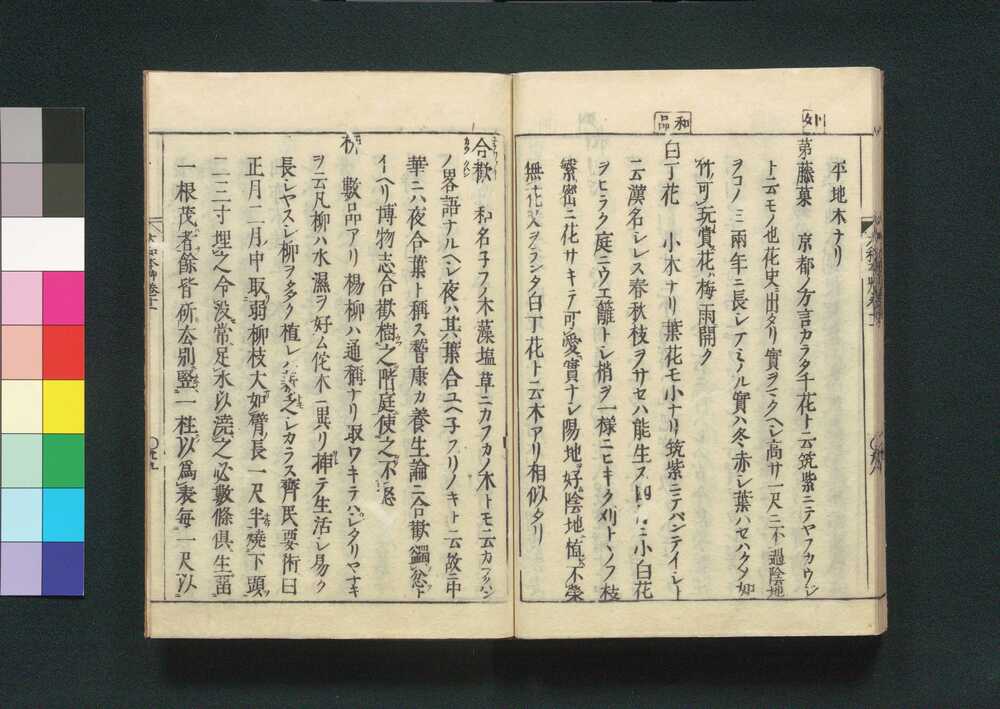 平地木ナリ
藤菓 京都ノ方言カラタチ花ト云筑紫ニテヤブカウジ
ト云モノ也花史ニ出タリ實ヲミクヘシ高サ一尺ニ不過陰地
ヲコノミ兩年ニ長レアミノル實ハ冬赤シ葉ハセハクメ如
竹可玩賞花ハ梅雨開ク
和品
白丁花 小木ナリ葉花モ小ナリ筑紫ニテバンテイシト
云漢名シレス春秋枝ヲサセハ能生ス 小白花
ヲヒラク庭ニウエ籬トシ梢ヲ一様ニヒキクメリトヽノフ枝
繁密ニ花サキテ可愛實ナシ陽地ニ好陰地ニ植レハ不榮
無花又ヲランダ白丁花ト云木アリ相似タリ
合歡 和名子フノ木藻塩草ニカフカノ木トモ云カフクハン
ノ畧語ナルヘシ夜ハ其葉合ユヘ子フリノキト云故ニ中
華ニハ夜合葉ト稱ス嵆康カ養生論ニ合歡蠲忿ト
イヘリ博物志合歡樹之階庭使之不忿
柳 數品アリ楊柳ハ通稱ナリ取ワキテハシタリヤナキ
ヲ云凡柳ハ水濕ヲ好ム佗木ニ異リ挿テ生活シ易ク
長シヤスシ柳ヲ多ク植レハ シカラス齊民要術曰
正月二月中取弱柳枝大如臂長一尺半燒下頭
二三寸埋之令没常足水以澆之必數條俱生留
一根茂者餘皆斫去別竪一柱以爲表毎一尺以